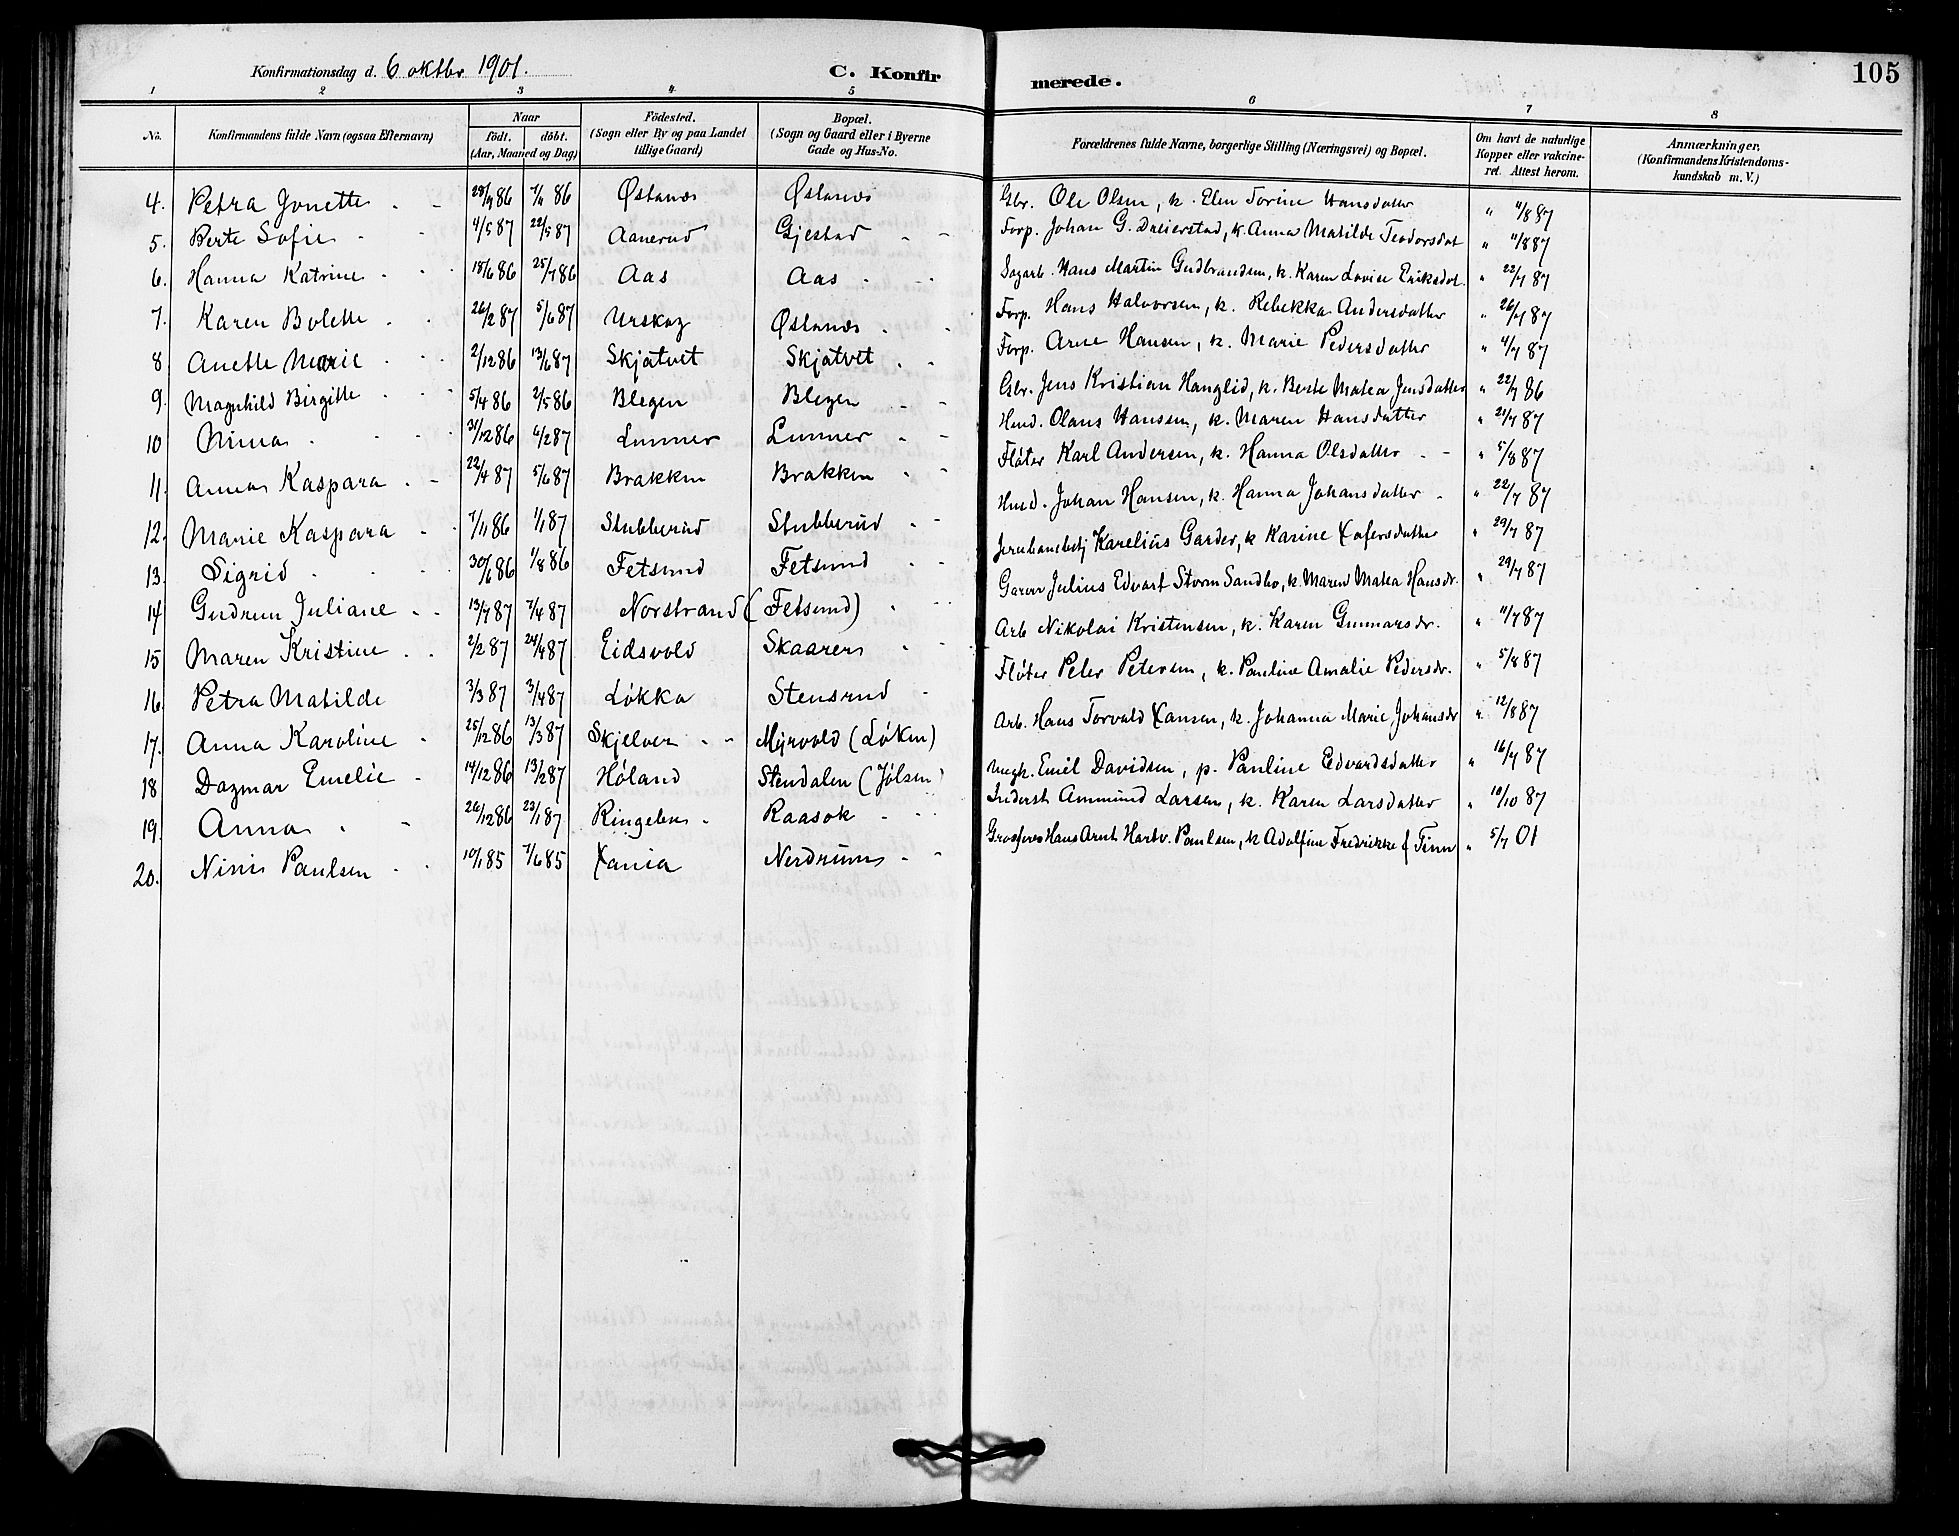 Konfirmationsdag d. 6 oktbr 1901.
C. Konfirmerede.
105
1 2 3 4 5 6 7 8
No. Konfirmandens fulde Navn (ogsaa Efternavn) Naar födt. döbt. (Aar, Maaned og Dag) Födested. (Sogn eller By og paa Landet tillige Gaard) Bopæl. (Sogn og Gaard eller i Byerne Gade og Hus-No. Forældrenes fulde Navne, borgerlige Stilling (Næringsvei) og Bopæl. Om havt de naturlige Kopper eller vakcineret. Attest herom. Anmærkninger. (Konfirmandens Kristendomskundskab m. V.)
4. Petra Jonette 86 86 Østanes Østanes Gbr. Ole Olsen, k. Elen Torine Hansdatter " 11/8 87
5. Berte Sofie 4/5 87 22/5 87 Aanerud Gjestad Forp. Johan G. Dreierstad, k. Anna Matilde Teodorsdat " 11/8 87
6. Hanna Katrine 18/6 86 25/7 86 Aas Aas Sagarb. Hans Martin Gudbrandsen, k. Karen Lovise Eriksdat. " 22/7 87
7. Karen Bolette 26/2 87 5/6 87 Urskog Østanes Forp. Hans Halvorsen, k. Rebekka Andersdatter " 26/7 87
8 Anette Marie 2/12 86 13/6 87 Skjatvet Skjatvet Forp. Arne Hansen, k. Marie Pedersdatter " 4/7 87
9. Magnhild Birgitte 5/4 86 2/5 86 Blegen Blegen Gbr. Jens Kristian Hanglid, k. Berte Matea Jensdatter " 22/7 86
10 Nima 31/12 86 4/2 87 Lunner Lunner Husd. Olaus Hansen, k. Maren Hansdatter " 21/7 87
11. Anna Kaspara 22/4 87 5/6 87 Brakken Brakken Fløter Karl Andersen, k. Hanna Olsdatter " 5/8 87
12. Marie Kaspara 7/11 86 1/1 87 Stubberud Stubberud Husd. Johan Hansen, k. Hanna Johansdatter " 22/7 87
13. Sigrid 30/6 86 1/8 86 Fetsund Fetsund Jernbanebetj Karelius Garder, k Karine Xofersdatter " 29/7 87
14 Gudrun Juliane 87 87 Norstrand (Fetsund) Garver Julius Edvart Storm Sandbo, k. Maren Matea Hansdr. " 29/7 87
15 Maren Kristine 2/2 87 24/4 87 Eidsvold Skaarer Arb Nikolai Kristensen, k. Karen Gunnarsdr. " 11/7 87
16. Petra Matilde 3/3 87 3/4 87 Løkka Stensrud Fløter Peter Petersen, k. Pauline Amalie Pedersdr. " 5/8 87
17. Anna Karoline 25/12 86 13/3 87 Skjelver Myrvold (Løken) Arb. Hans Torvald Xansen, k. Johanna Marie Johansdr " 12/8 87
18 Dagmar Emelie 14/12 86 13/2 87 Høland Stendalen (Jølsen) Ungk. Emil Davidsen, p. Pauline Edvardsdatter " 16/7 87
19. Anna 26/12 86 23/1 87 Ringelen Raasok Inderst Ammund Larsen, k. Karen Larsdatter " 10/10 87
20. Nini Paulsen 10/1 85 7/6 85 Xania Nerdrum Grosserer Hans Arnt Hartv. Paulsen, k Adolfine Fredrikke f Finn " 5/7 01